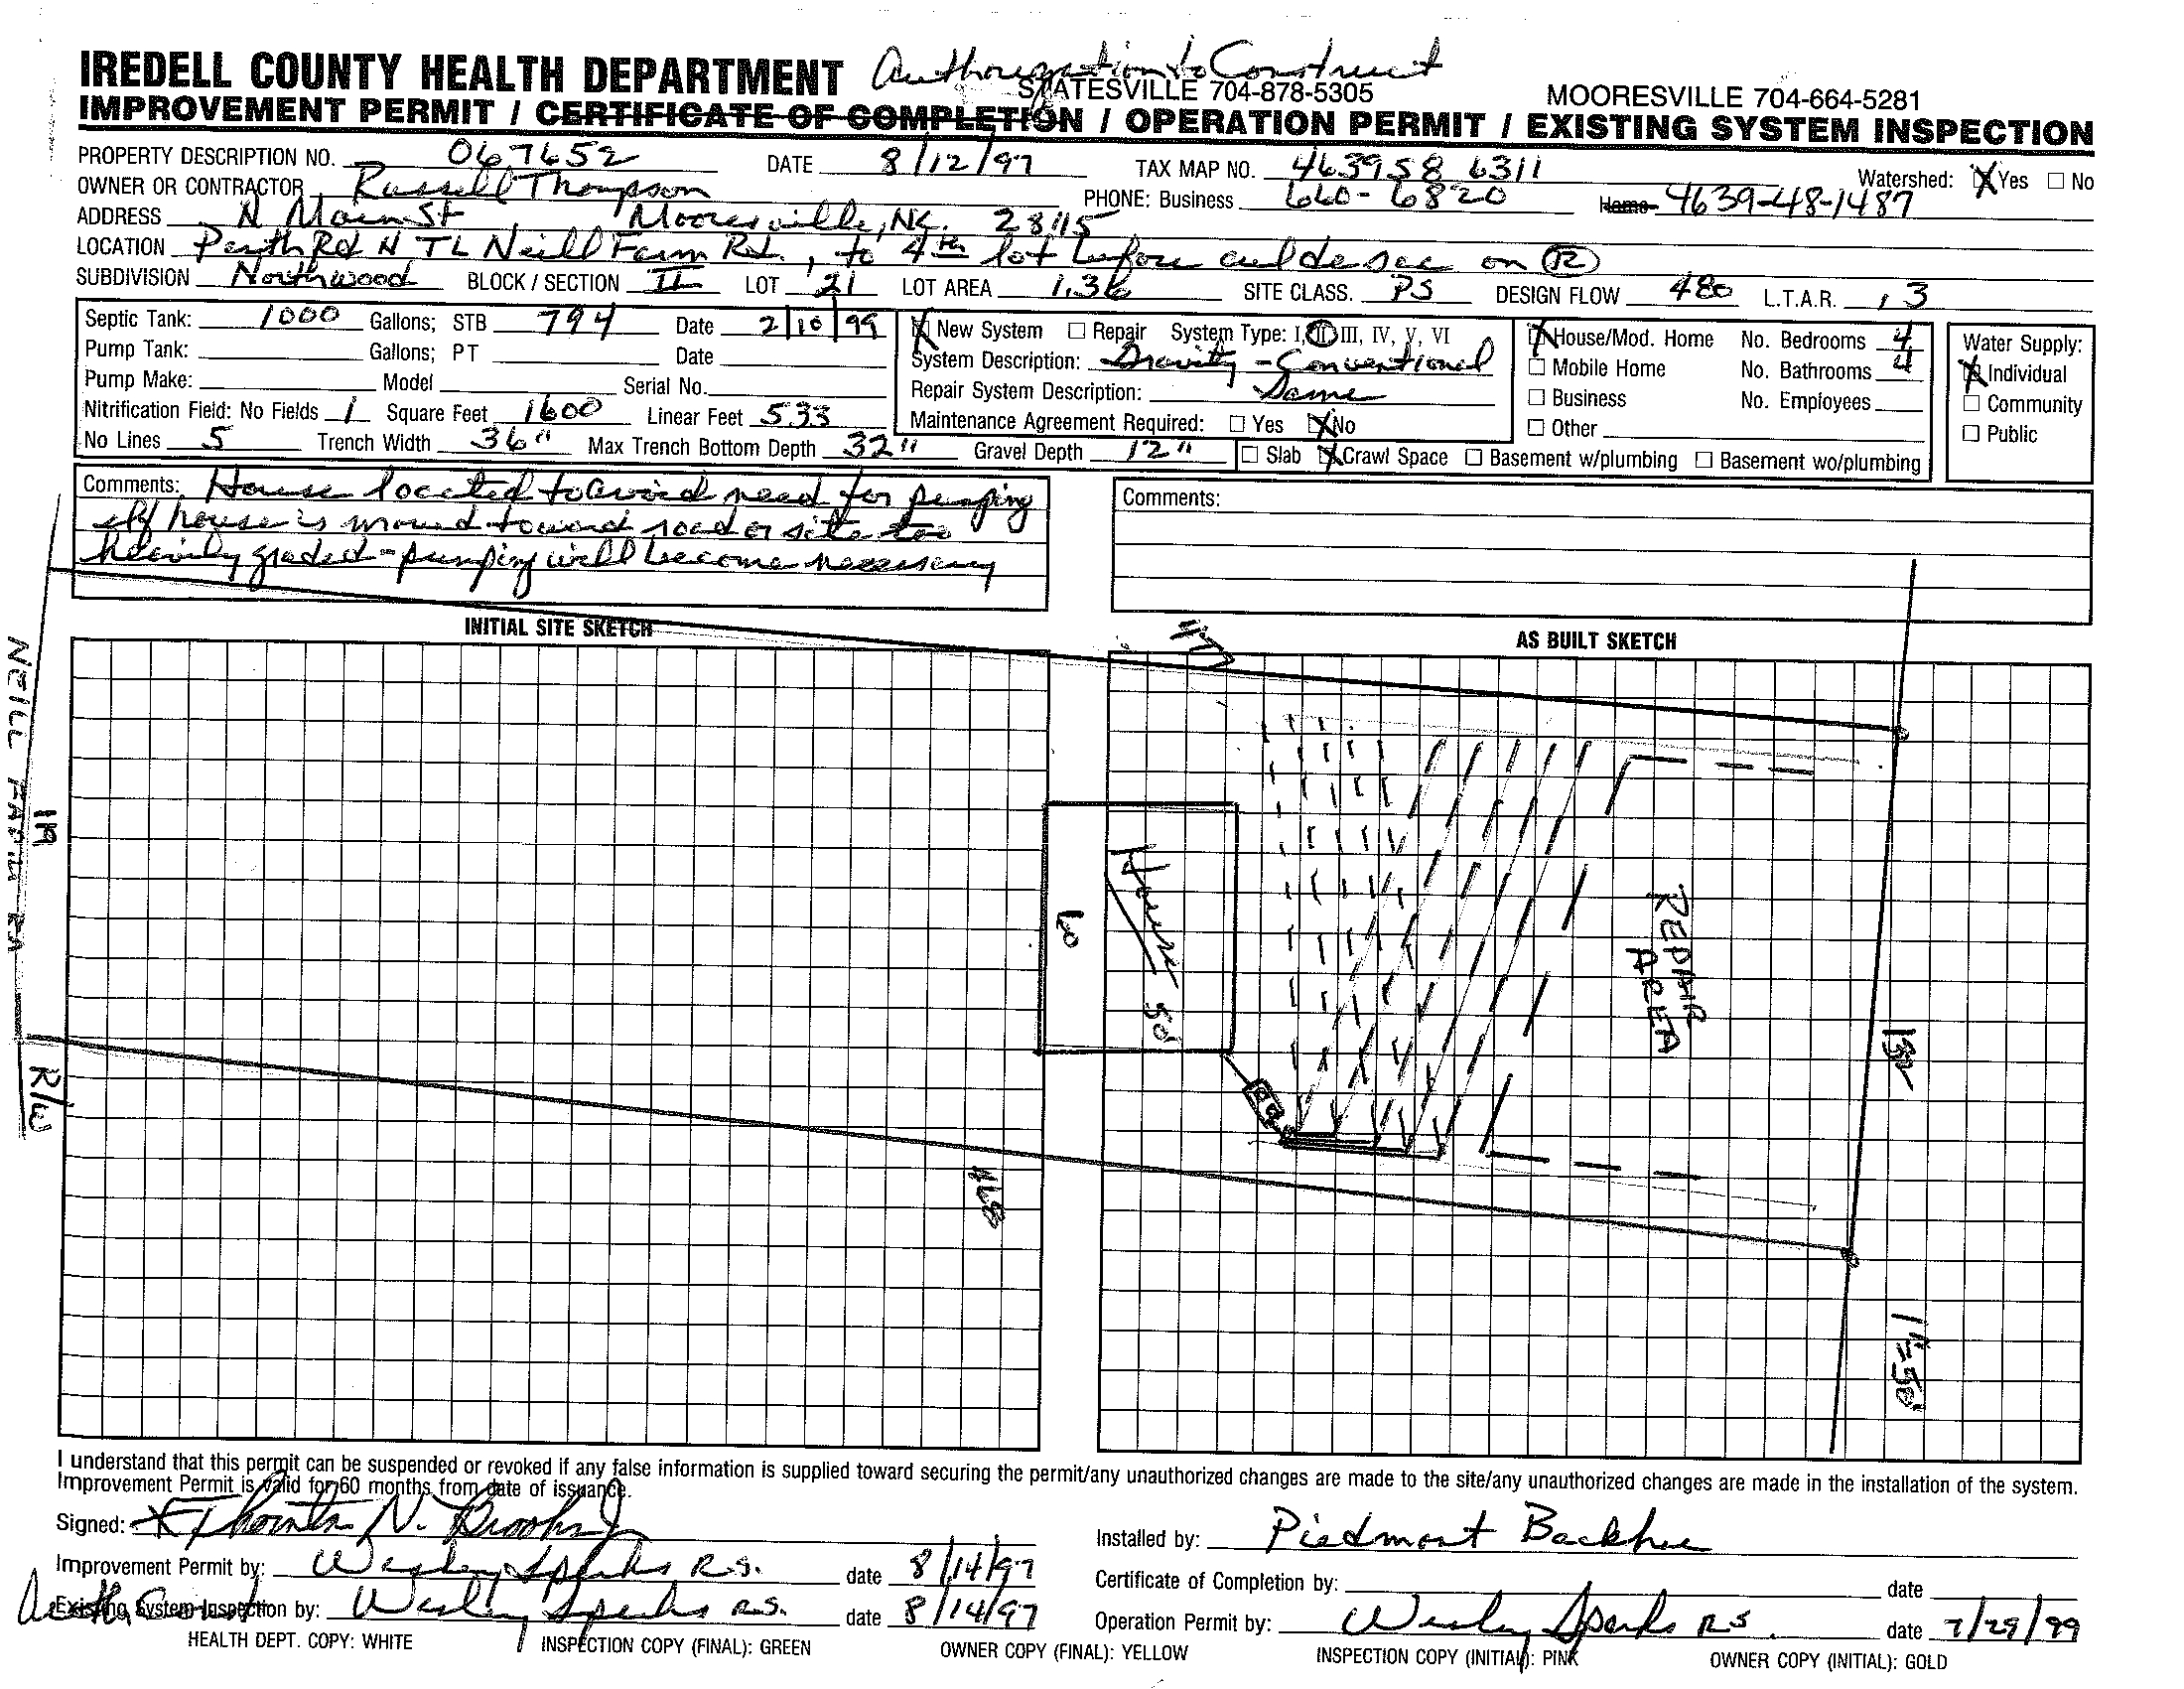 IREDELL COUNTY HEALTH DEPARTMENT Authorization to Construct
STATESVILLE 704-878-5305 MOORESVILLE 704-664-5281
IMPROVEMENT PERMIT / CERTIFICATE OF COMPLETION / OPERATION PERMIT / EXISTING SYSTEM INSPECTION
PROPERTY DESCRIPTION NO. 067652 DATE 8/12/97 TAX MAP NO. 463958 6311 Watershed: X Yes ☐ No
OWNER OR CONTRACTOR Russell Thompson PHONE: Business 660-6820 Home 4639-48-1487
ADDRESS N. Main St Mooresville, NC. 28115
LOCATION Perth Rd N TL Neill Farm Rd., to 4th lot before cul de sac on R
SUBDIVISION Northwood BLOCK / SECTION II LOT 21 LOT AREA 1.36 SITE CLASS. PS DESIGN FLOW 480 L.T.A.R. .3
Septic Tank: 1000 Gallons; STB 794 Date 2/10/99
Pump Tank: Gallons; PT Date
Pump Make: Model Serial No.
Nitrification Field: No Fields 1 Square Feet 1600 Linear Feet 533
No Lines 5 Trench Width 36" Max Trench Bottom Depth 32" Gravel Depth 12"
X New System ☐ Repair System Type: I, II, III, IV, V, VI
System Description: Gravity - Conventional
Repair System Description: Same
Maintenance Agreement Required: ☐ Yes X No
X House/Mod. Home No. Bedrooms 4
☐ Mobile Home No. Bathrooms 4
☐ Business No. Employees
☐ Other
☐ Slab X Crawl Space ☐ Basement w/plumbing ☐ Basement wo/plumbing
Water Supply:
X Individual
☐ Community
☐ Public
Comments: House located to avoid need for pumping
if house is moved toward road or site too
heavily graded - pumping will become necessary
Comments:
INITIAL SITE SKETCH
AS BUILT SKETCH
NEILL FARM RD
R/W
60
House
50'
REPAIR
AREA
1"=50'
I understand that this permit can be suspended or revoked if any false information is supplied toward securing the permit/any unauthorized changes are made to the site/any unauthorized changes are made in the installation of the system.
Improvement Permit is valid for 60 months from date of issuance.
Signed: X Thornton N. Brooks Jr
Improvement Permit by: Wesley Sparks R.S. date 8/14/97
Existing System Inspection by: Wesley Sparks R.S. date 8/14/97
Installed by: Piedmont Backhoe
Certificate of Completion by: date
Operation Permit by: Wesley Sparks RS date 7/29/99
HEALTH DEPT. COPY: WHITE INSPECTION COPY (FINAL): GREEN OWNER COPY (FINAL): YELLOW INSPECTION COPY (INITIAL): PINK OWNER COPY (INITIAL): GOLD